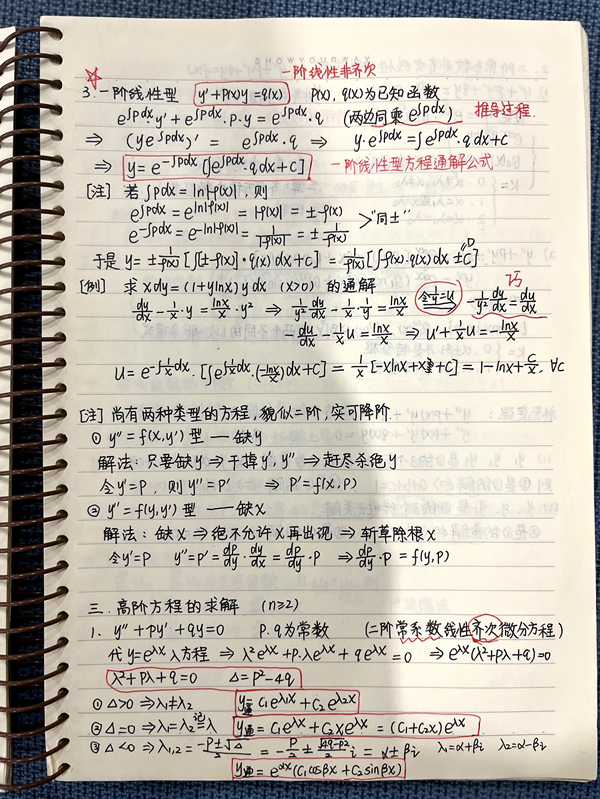 一阶线性非齐次
☆ 3.一阶线性型 y'+P(x)y=q(x) P(x), q(x)为已知函数
e^{∫pdx}y'+e^{∫pdx}·P·y=e^{∫pdx}·q (两边同乘e^{∫pdx}) 推导过程.
⇒ (ye^{∫pdx})' = e^{∫pdx}·q ⇒ y·e^{∫pdx}=∫e^{∫pdx}·q dx+C
⇒ y=e^{-∫pdx}[∫e^{∫pdx}·q dx+C] 一阶线性型方程通解公式
[注] 若∫pdx=ln|φ(x)|, 则
e^{∫pdx}=e^{ln|φ(x)|}=|φ(x)|=±φ(x)
e^{-∫pdx}=e^{-ln|φ(x)|}=1/|φ(x)|=±1/φ(x) >"同±"
于是 y=±1/φ(x)[∫[±φ(x)]·q(x)dx+C]=1/φ(x)[∫φ(x)·q(x)dx±C] "D"
[例] 求xdy=(1+ylnx)ydx (x>0) 的通解 巧
dy/dx-1/x·y=lnx/x·y² ⇒ 1/y²·dy/dx-1/x·1/y=lnx/x 令1/y=u -1/y²·dy/dx=du/dx
-du/dx-1/x·u=lnx/x ⇒ u'+1/x·u=-lnx/x
u=e^{-∫1/x dx}·[∫e^{∫1/x dx}·(-lnx/x)dx+C]=1/x[-xlnx+x+C]=1-lnx+C/x, ∀C
[注] 尚有两种类型的方程,貌似二阶,实可降阶.
① y''=f(x,y')型 — 缺y
解法:只要缺y⇒干掉y',y''⇒赶尽杀绝y
令y'=P, 则y''=P' ⇒ P'=f(x,P)
② y''=f(y,y')型 — 缺x
解法:缺x⇒绝不允许x再出现⇒斩草除根x
令y'=P y''=P'=dP/dy·dy/dx=dP/dy·P ⇒dP/dy·P=f(y,P)
三.高阶方程的求解 (n≥2)
1. y''+py'+qy=0 P.q为常数 (二阶常系数线性齐次微分方程)
代y=e^{λx}入方程⇒λ²e^{λx}+P·λe^{λx}+qe^{λx}=0 ⇒e^{λx}(λ²+Pλ+q)=0
λ²+Pλ+q=0 Δ=P²-4q
①Δ>0⇒λ₁≠λ₂ y通=C₁e^{λ₁x}+C₂e^{λ₂x}
②Δ=0⇒λ₁=λ₂记=λ y通=C₁e^{λx}+C₂xe^{λx}=(C₁+C₂x)e^{λx}
③Δ<0⇒λ₁,₂=(-P±√Δ)/2=-P/2±(√(4q-P²)/2)i=α±βi λ₁=α+βi λ₂=α-βi
y通=e^{αx}(C₁cosβx+C₂sinβx)